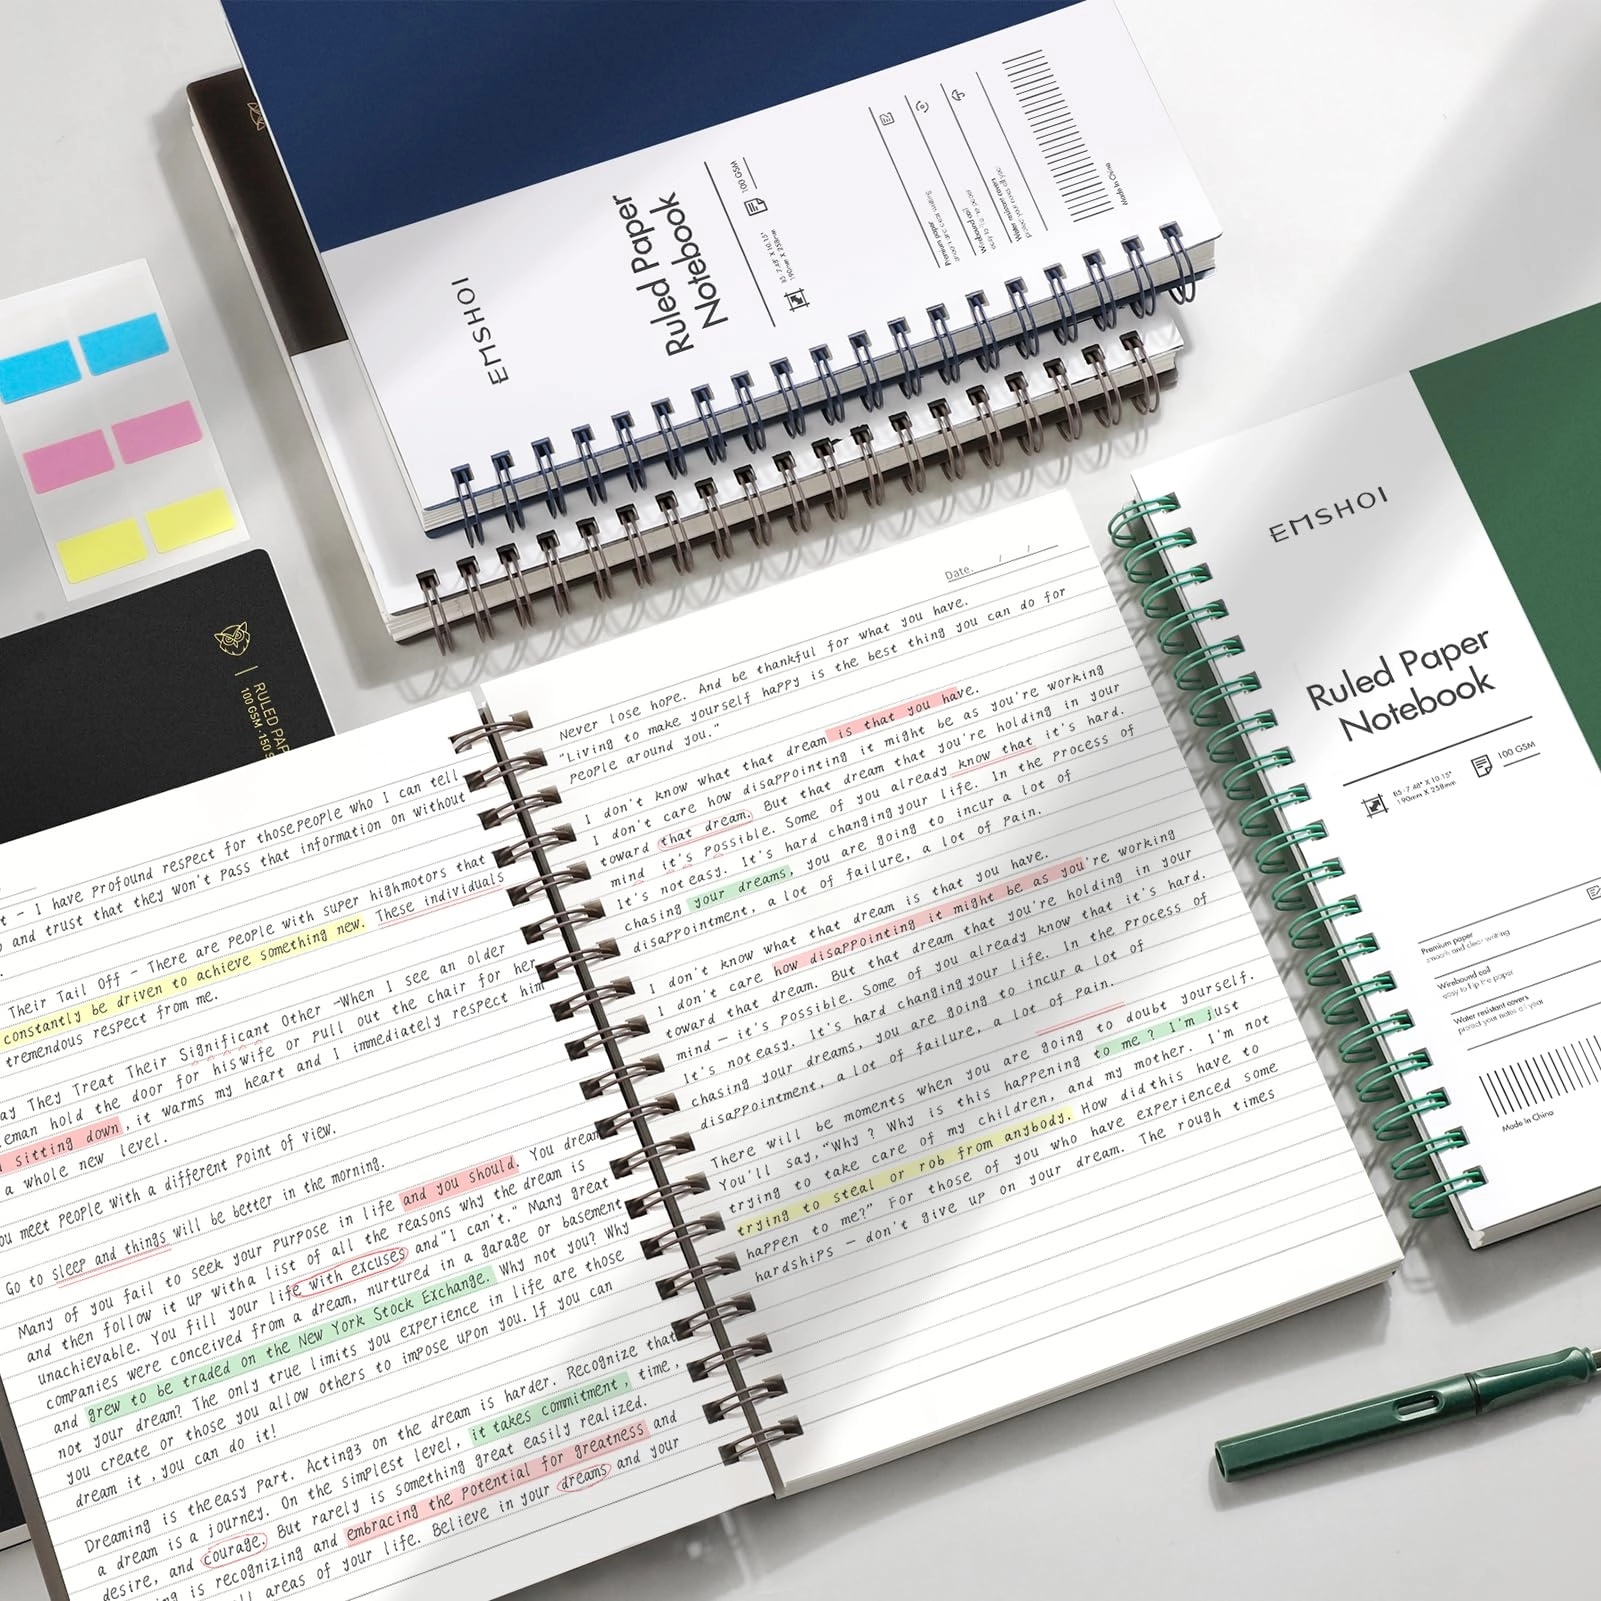 EMSHOI
Ruled Paper
Notebook
B5 · 7.48" X 10.15"
190mm X 258mm
100 GSM
Premium paper
Wirebound coil
Water resistant covers
Made In China
RULED PAP
100 GSM · 150 S
t - I have profound respect for thosepeople who I can tell
and trust that they won't pass that information on without
Their Tail Off - There are people with super highmotors that
constantly be driven to achieve something new. These individuals
tremendous respect from me.
ay They Treat Their Significant Other -When I see an older
eman hold the door for hiswife or pull out the chair for her
sitting down, it warms my heart and I immediately respect him
a whole new level.
ou meet people with a different point of view.
Go to sleep and things will be better in the morning.
Many of you fail to seek your purpose in life and you should. You dream
and then follow it up witha list of all the reasons why the dream is
unachievable. You fill your life with excuses and"I can't." Many great
companies were conceived from a dream, nurtured in a garage or basement
and grew to be traded on the New York Stock Exchange. Why not you? Why
not your dream? The only true limits you experience in life are those
you create or those you allow others to impose upon you.If you can
dream it ,you can do it!
Dreaming is theeasy part. Acting3 on the dream is harder. Recognize that
a dream is a journey. On the simplest level, it takes commitment, time,
desire, and courage. But rarely is something great easily realized.
ing is recognizing and embracing the potential for greatness and
ll areas of your life. Believe in your dreams and your
Date. / /
Never lose hope. And be thankful for what you have.
"Living to make yourself happy is the best thing you can do for
people around you."
I don't know what that dream is that you have.
I don't care how disappointing it might be as you're working
toward that dream. But that dream that you're holding in your
mind it's possible. Some of you already know that it's hard.
It's noteasy. It's hard changingyour life. In the process of
chasing your dreams, you are going to incur a lot of
disappointment, a lot of failure, a lot of pain.
I don't know what that dream is that you have.
I don't care how disappointing it might be as you're working
toward that dream. But that dream that you're holding in your
mind — it's possible. Some of you already know that it's hard.
It's noteasy. It's hard changingyour life. In the process of
chasing your dreams, you are going to incur a lot of
disappointment, a lot of failure, a lot of pain.
There will be moments when you are going to doubt yourself.
You'll say,"Why ? Why is this happening to me ? I'm just
trying to take care of my children, and my mother. I'm not
trying to steal or rob from anybody. How did this have to
happen to me?" For those of you who have experienced some
hardships — don't give up on your dream. The rough times
EMSHOI
Ruled Paper
Notebook
B5 · 7.48" X 10.15"
190mm X 258mm
100 GSM
Premium paper
smooth and clear writing
Wirebound coil
easy to flip the paper
Water resistant covers
Made In China